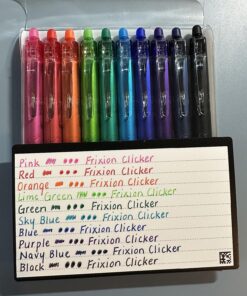 Pink Frixion Clicker
Red Frixion Clicker
Orange Frixion Clicker
Lime Green Frixion Clicker
Green Frixion Clicker
Sky Blue Frixion Clicker
Blue Frixion Clicker
Purple Frixion Clicker
Navy Blue Frixion Clicker
Black Frixion Clicker